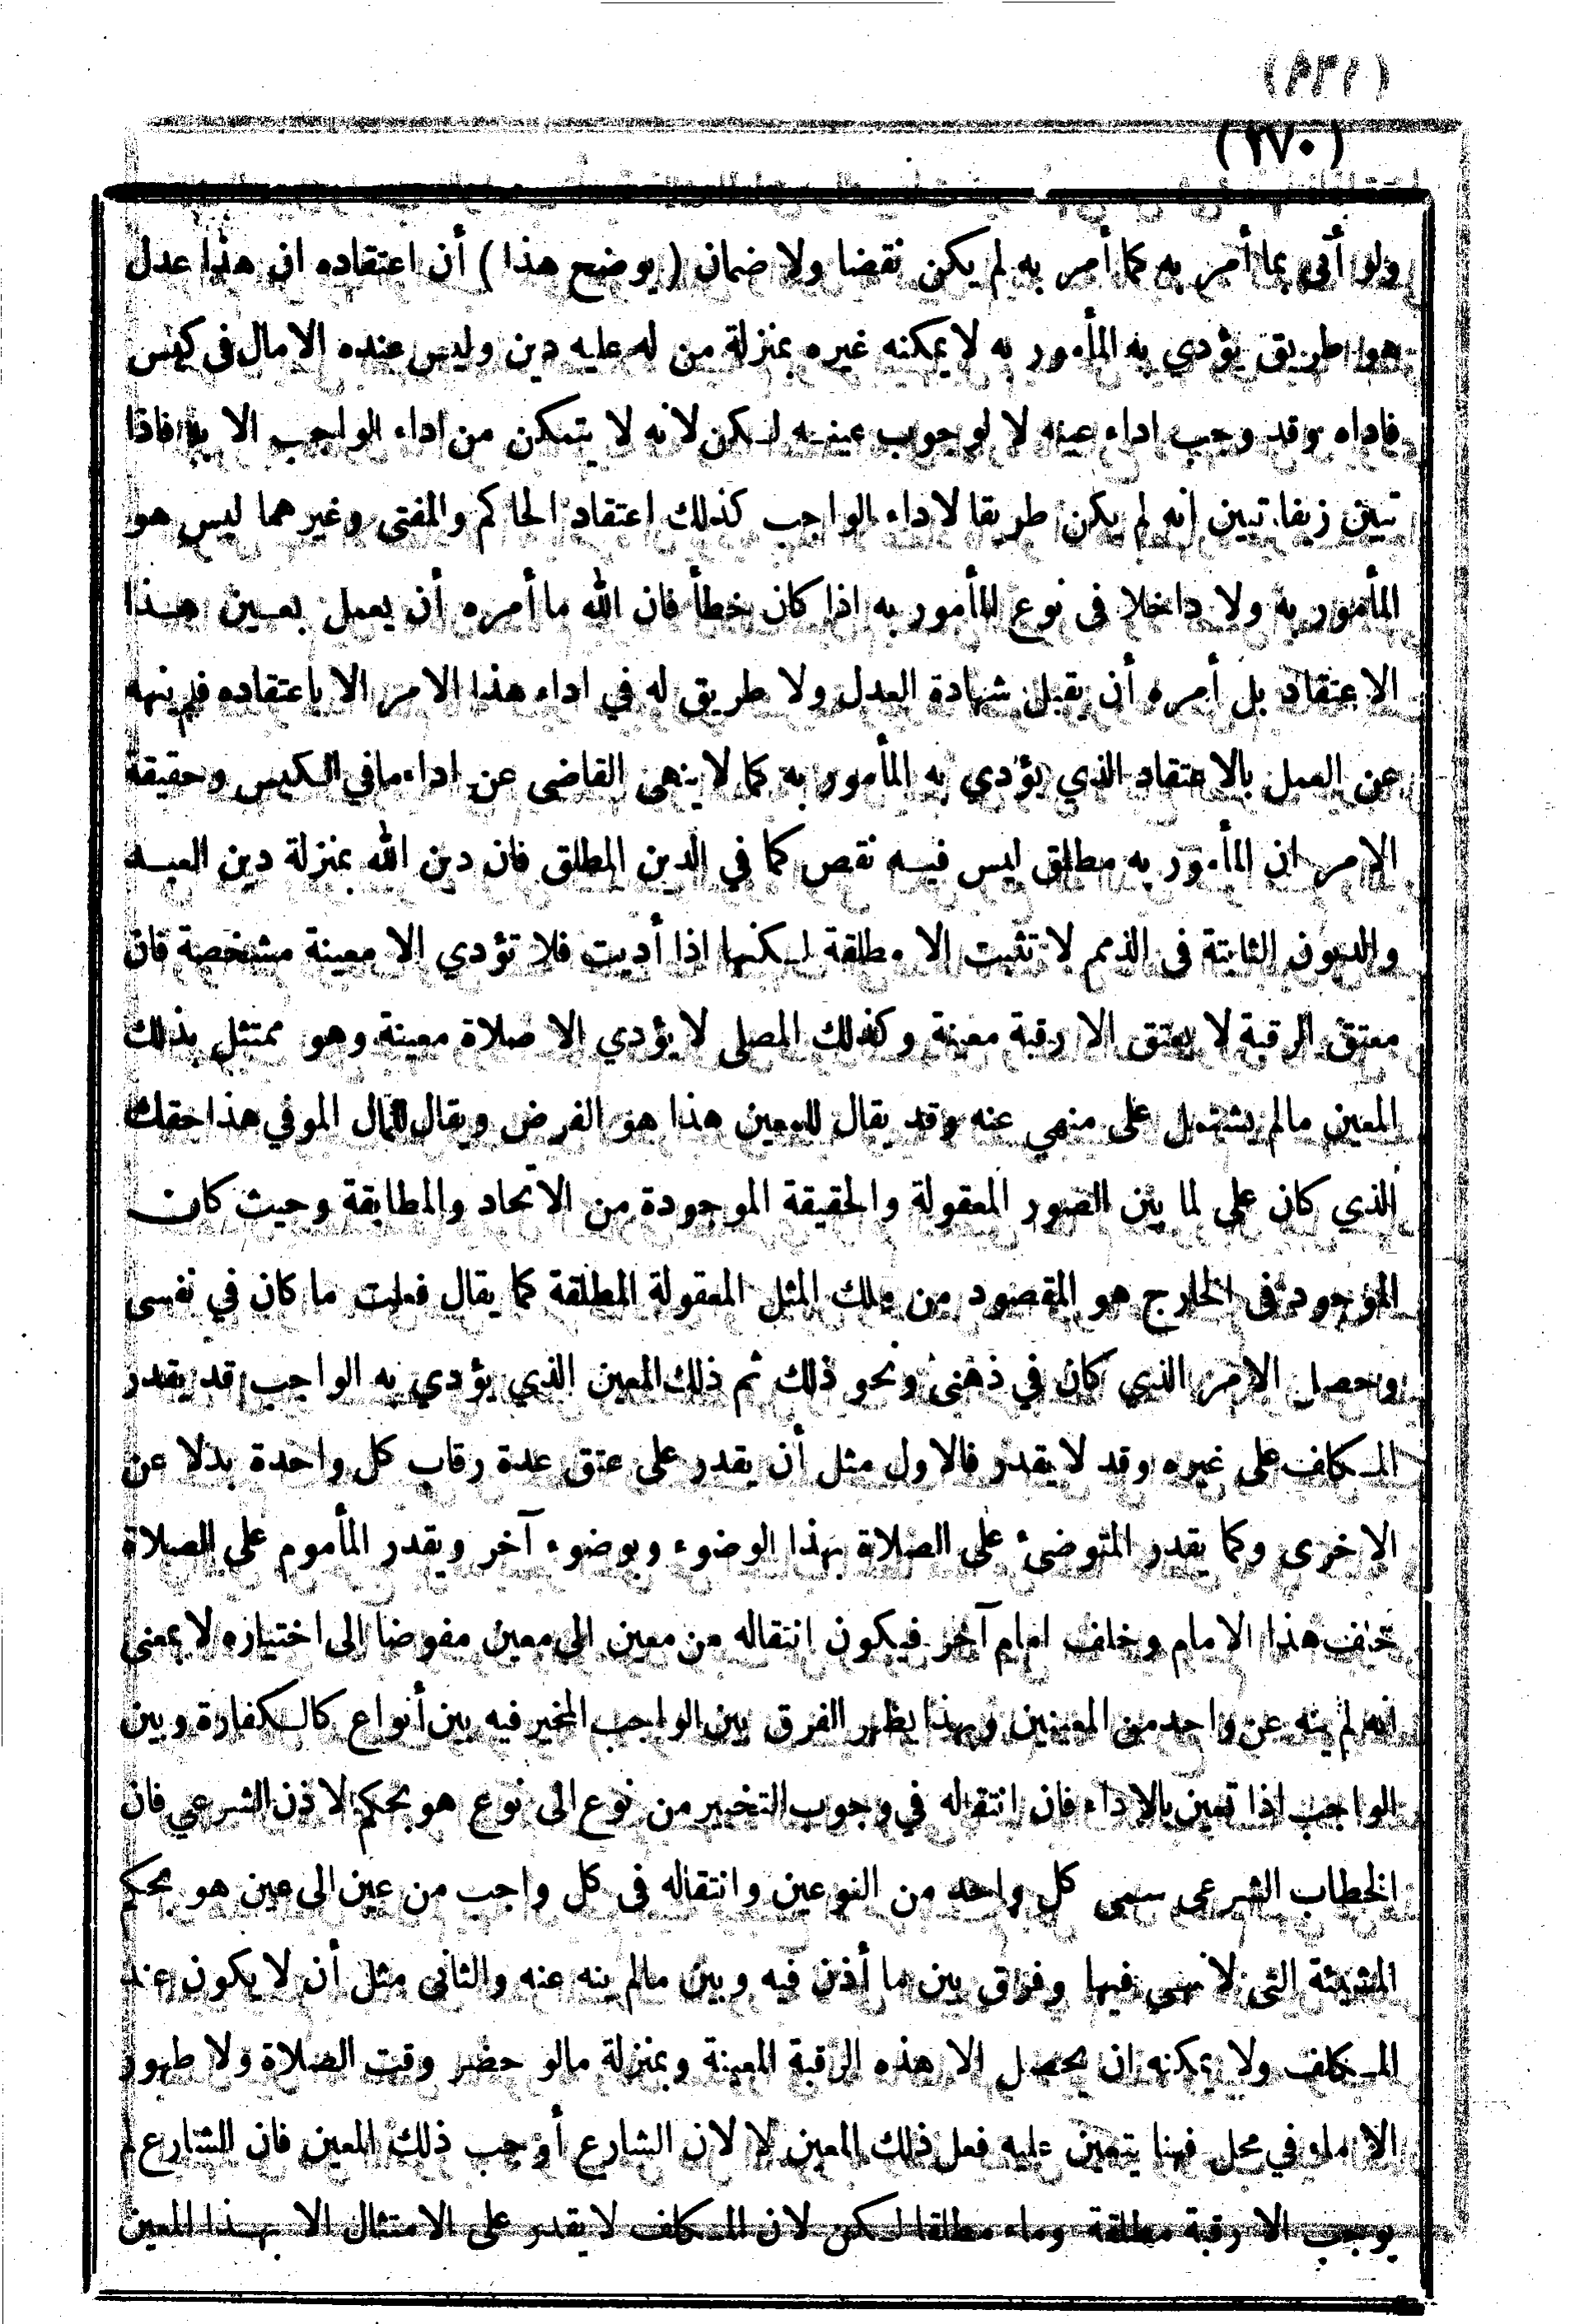 (٢٧٠)
ولو أتى بما أمر به كما أمر به لم يكن نقضا ولا ضمان ( يوضح هذا ) أن اعتقاده ان هذا عدل
هو طريق يؤدي به المأمور به لا يمكنه غيره بمنزلة من له عليه دين وليس عنده الا مال في كيس
فاداه وقد وجب اداء عينه لا لوجوب عينه لكن لانه لا يتمكن من اداء الواجب الا به فاذا
تبين زيفا تبين انه لم يكن طريقا لاداء الواجب كذلك اعتقاد الحاكم والمفتى وغيرهما ليس هو
المأمور به ولا داخلا في نوع المأمور به اذا كان خطأ فان الله ما أمره أن يعمل بعين هذا
الاعتقاد بل أمره أن يقبل شهادة العدل ولا طريق له في اداء هذا الامر الا باعتقاده فلم ينهه
عن العمل بالاعتقاد الذي يؤدي به المأمور به كما لا ينهى القاضى عن اداء مافي الكيس وحقيقة
الامر ان المأمور به مطلق ليس فيه نقص كما في الدين المطلق فان دين الله بمنزلة دين العبد
والديون الثابتة في الذمم لا تثبت الا مطلقة لكنها اذا أديت فلا تؤدي الا معينة مشخصة فان
معتق الرقبة لا يعتق الا رقبة معينة وكذلك المصلى لا يؤدي الا صلاة معينة وهو ممتثل بذلك
المعين مالم يشتمل على منهي عنه وقد يقال للمعين هذا هو الفرض ويقال للمال الموفي هذا حقك
الذي كان علي لما بين الصور المعقولة والحقيقة الموجودة من الاتحاد والمطابقة وحيث كان
الموجود في الخارج هو المقصود من تلك المثل المعقولة المطلقة كما يقال فعلت ما كان في نفسى
وحصل الامر الذي كان في ذهنى ونحو ذلك ثم ذلك المعين الذي يؤدي به الواجب قد يقدر
المكلف على غيره وقد لا يقدر فالاول مثل أن يقدر على عتق عدة رقاب كل واحدة بدلا عن
الاخرى وكما يقدر المتوضئ على الصلاة بهذا الوضوء وبوضوء آخر ويقدر المأموم على الصلاة
خلف هذا الامام وخلف امام آخر فيكون انتقاله من معين الى معين مفوضا الى اختياره لا بمعنى
انه لم ينه عن واحد من المعينين وبهذا يظهر الفرق بين الواجب المخير فيه بين أنواع كالكفارة وبين
الواجب اذا تعين بالاداء فان انتقاله في وجوب التخيير من نوع الى نوع هو بحكم الاذن الشرعي فان
الخطاب الشرعى سمى كل واحد من النوعين وانتقاله في كل واجب من عين الى عين هو بحكم
المشيئة التى لا نهي فيها وفرق بين ما أذن فيه وبين مالم ينه عنه والثانى مثل أن لا يكون عند
المكلف ولا يمكنه ان يحصل الا هذه الرقبة المعينة وبمنزلة مالو حضر وقت الصلاة ولا طهور
الا ماء في محل فهنا يتعين عليه فعل ذلك المعين لا لان الشارع أوجب ذلك المعين فان الشارع لم
يوجب الا رقبة مطلقة وماء مطلقا لكن لان المكلف لا يقدر على الامتثال الا بهذا المعين